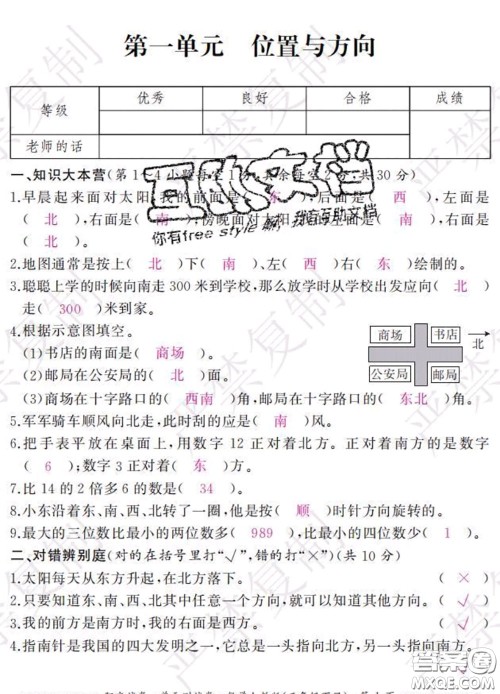 第一单元 位置与方向
等级 优秀 良好 合格 成绩
老师的话
一、知识大本营(第1~4小题每空1分,其余每空2分,共30分)
1.早晨起来面对太阳,我的前面是( 东 ),后面是( 西 ),左面是
( 北 ),右面是( 南 );傍晚面对太阳,我的左面是( 南 ),右面是
( 北 )。
2.地图通常是按上( 北 )下( 南 )、左( 西 )右( 东 )绘制的。
3.聪聪上学的时候向南走300米到学校,那么放学时从学校出发应向( 北 )
走( 300 )米到家。
4.根据示意图填空。
(1)书店的南面是( 商场 )。
(2)邮局在公安局的( 北 )面。
(3)商场在十字路口的( 西南 )角,邮局在十字路口的( 东北 )角。
商场 书店
公安局 邮局
北
5.军军骑车顺风向北走,此时刮的应是( 南 )风。
6.把手表平放在桌面上,用数字12正对着北方。正对着南方的是数字
( 6 );数字3正对着( 东 )方。
7.比14的2倍多6的数是( 34 )。
8.小东沿着东、南、西、北转了一圈,他是按( 顺 )时针方向旋转的。
9.最大的三位数比最小的两位数多( 989 ),比最小的四位数少( 1 )。
二、对错辨别庭(对的在括号里打“√”,错的打“×”)(共10分)
1.太阳每天从东方升起,在北方落下。 ( × )
2.只要知道东、南、西、北其中任意一个方向,就可以知道其他方向。 ( √ )
3.我的前方是南方时,我的右面是东方。
4.指南针是我国的四大发明之一,它总是一头指向北方,另一头指向南方。
严禁复制
互助文档
你有free style吗,我有互助文档
答案圈